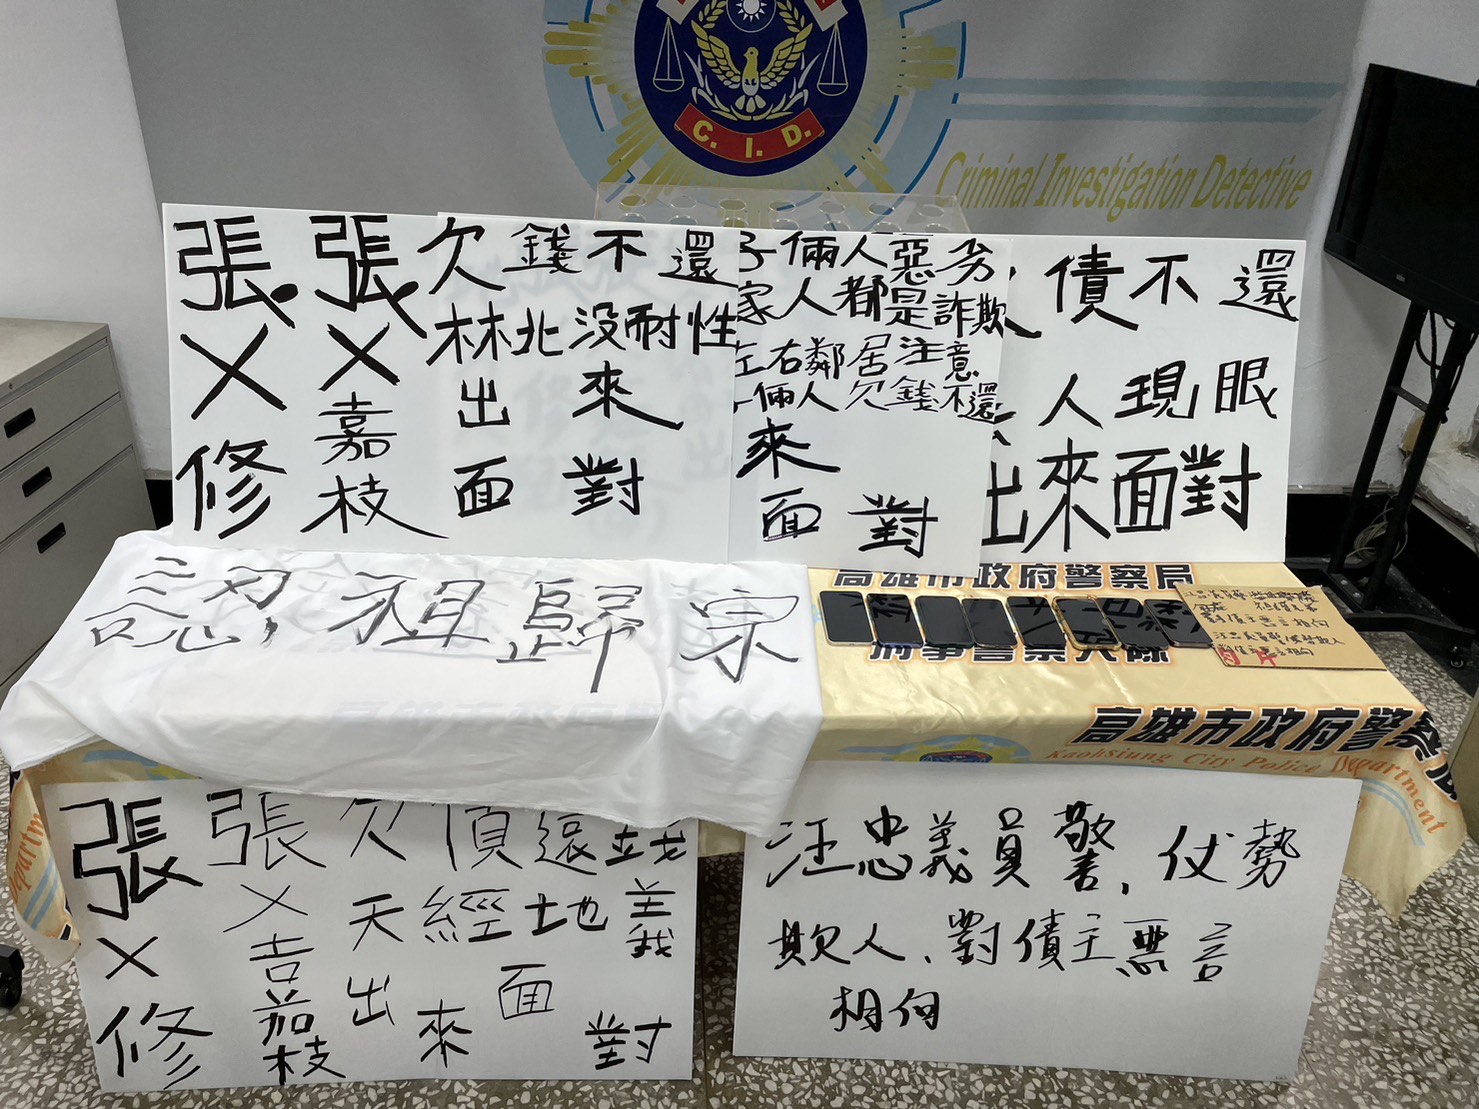 C. I. D.
Criminal Investigation Detective
張.張欠錢不還
林北沒耐性
✕✕出來
修嘉枝面對
子倆人惡劣
家人都是詐欺
左右鄰居注意
倆人欠錢不還
來
面對
債不還
人現眼
出來面對
認祖歸宗
高雄市政府警察局
刑事警察大隊
高雄市政府警察局
Kaohsiung City Police Department
張張欠債還錢
✕✕天經地義
修嘉枝出來面對
汪忠義員警,仗勢
欺人、對債主惡言
相向